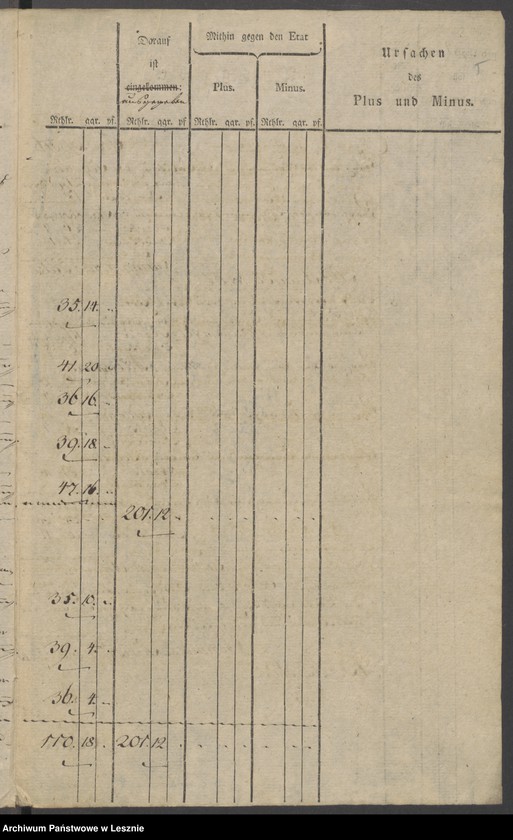 Darauf
ist
eingekommen:
ausgegeben
Mithin gegen den Etat
Plus.
Minus.
Ursachen
des
Plus und Minus.
Rthlr. ggr. pf.
Rthlr. ggr. pf
Rthlr. ggr. pf.
Rthlr. ggr. pf.
35. 14. ..
41. 20
36 16.
39. 18
47. 16. ..
201. 12
35. 10. ..
39. 4. ..
36. 4.
110. 18. 201. 12
Archiwum Państwowe w Lesznie